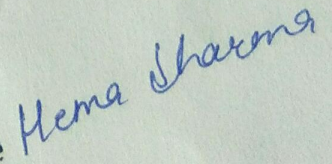 Hema Sharma